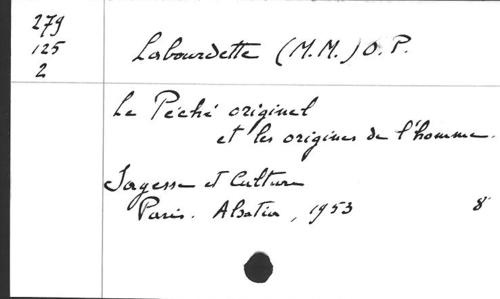 279
125
2
Labourdette (M.M.) O.P.
Le Péché originel
et les origines de l'homme.
Sagesse et Culture
Paris. Alsatia, 1953 8°